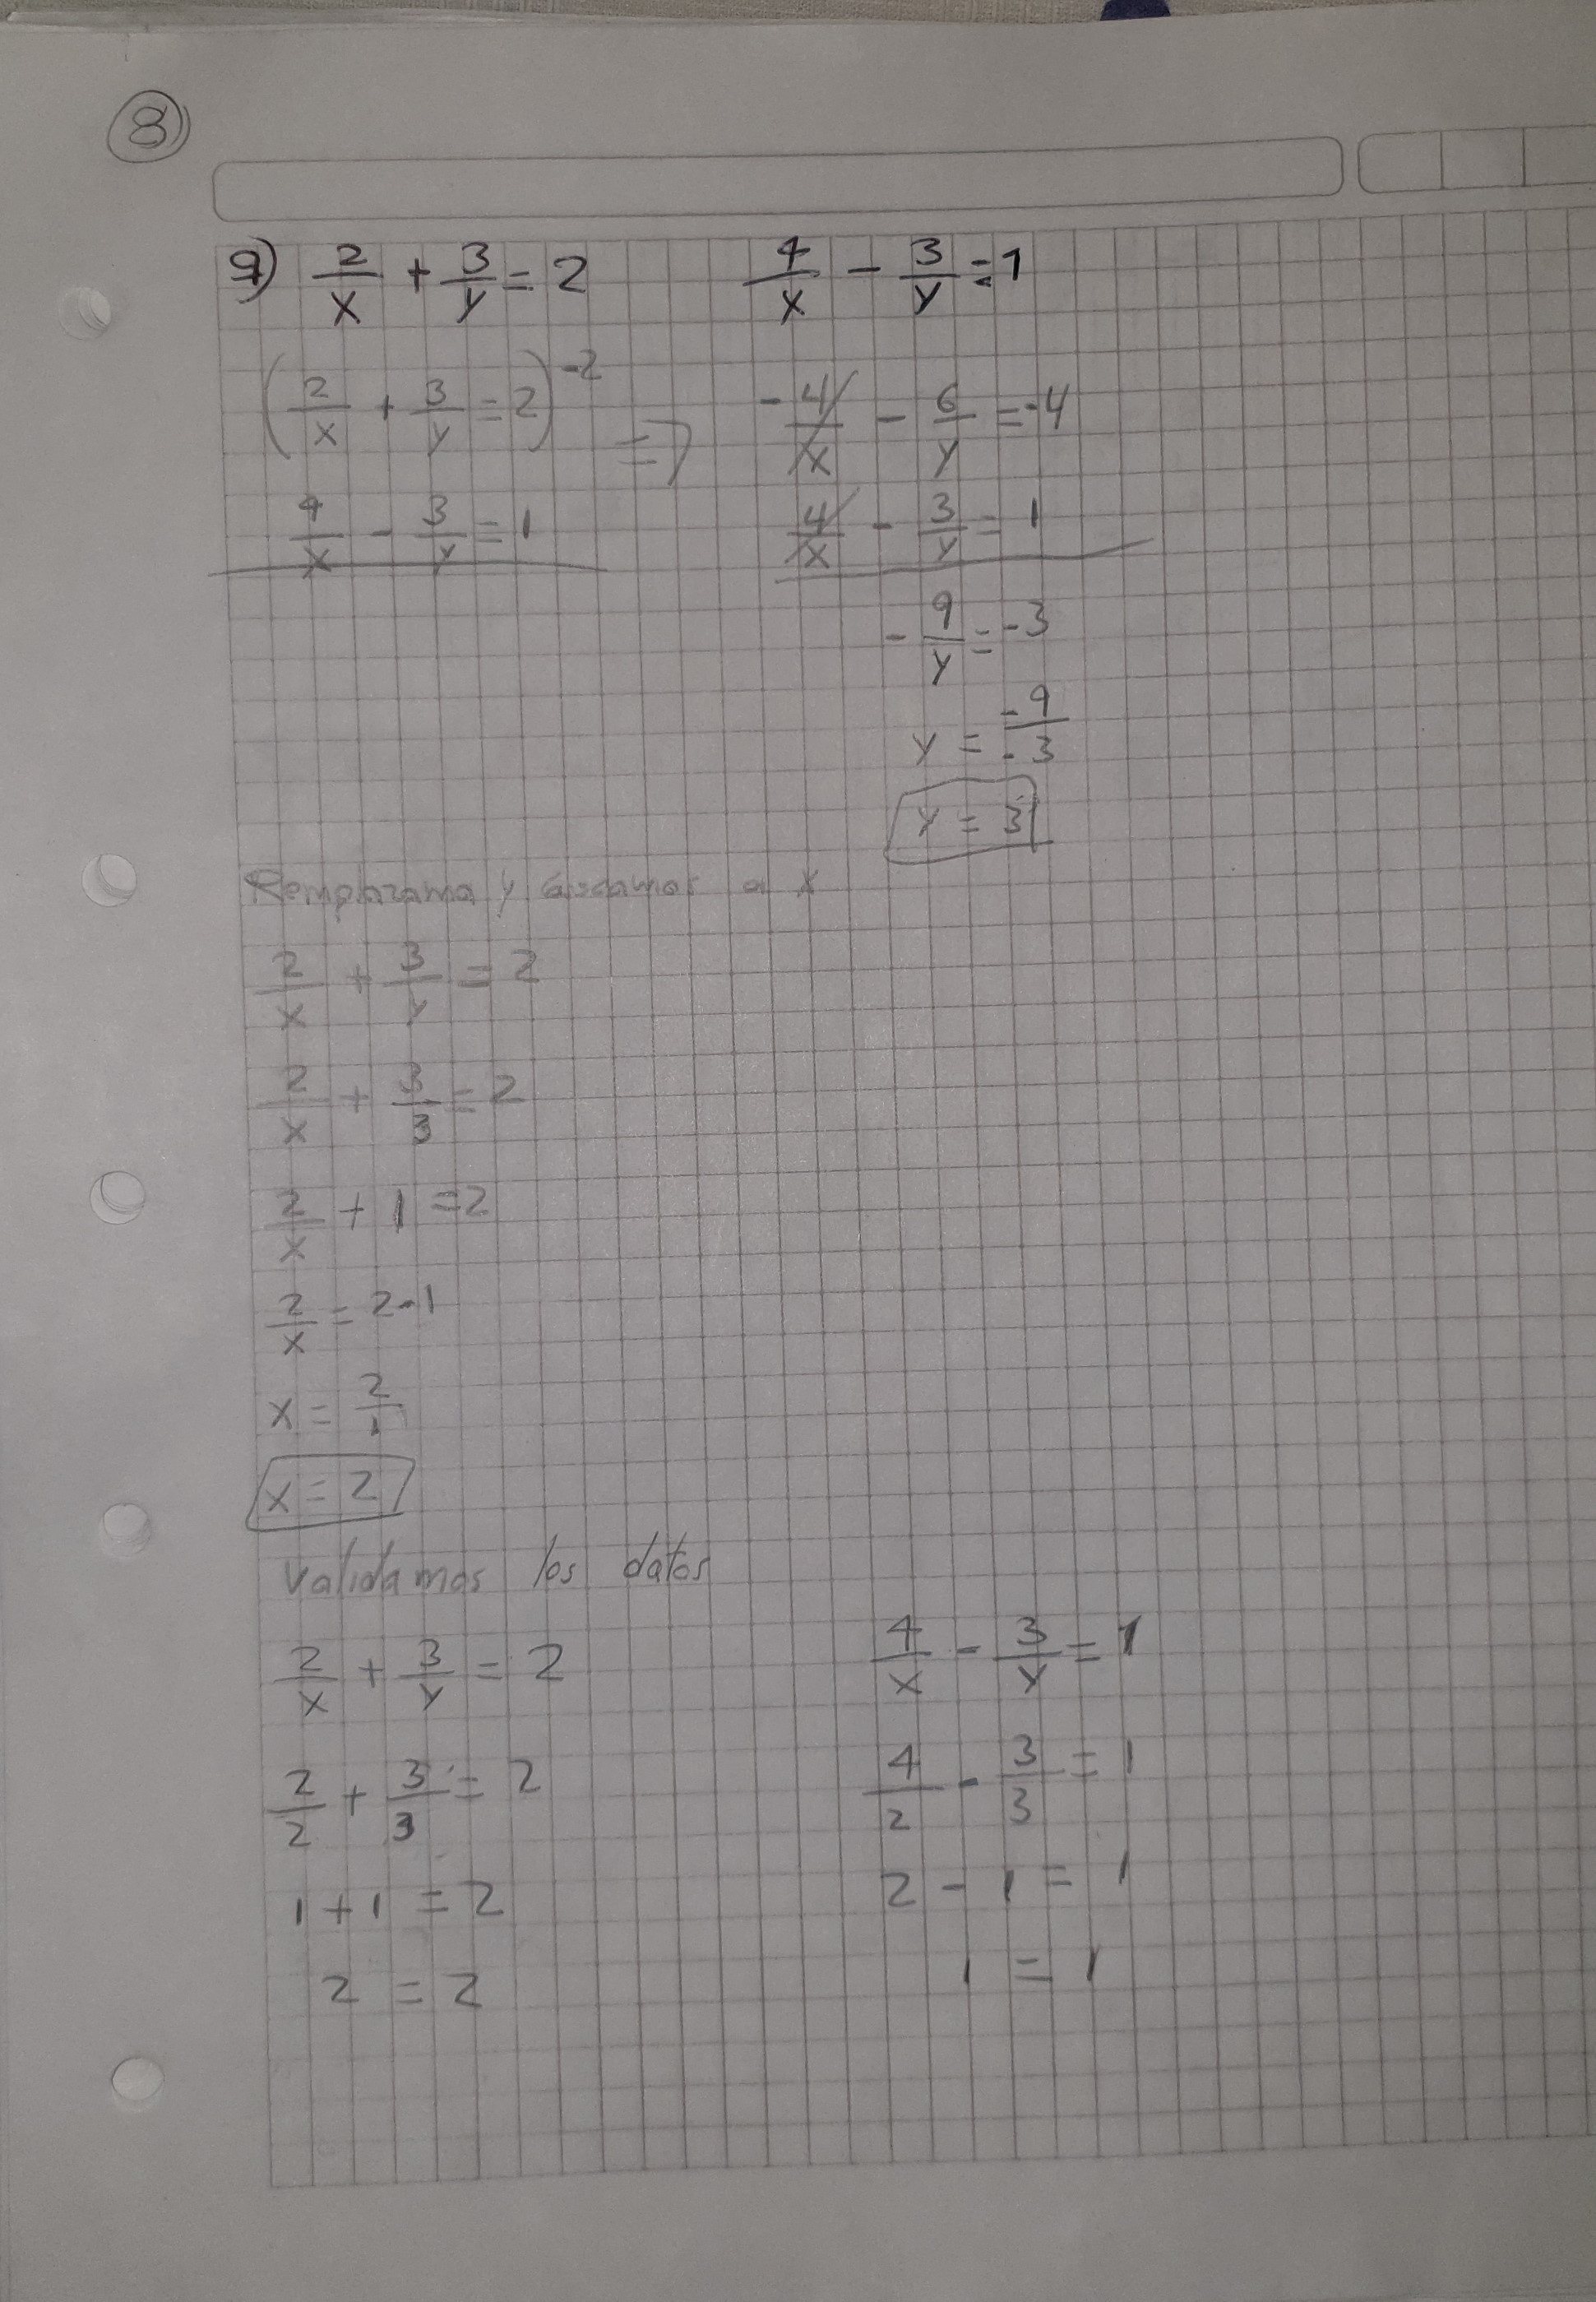 8
9) 2/x + 3/y = 2    4/x - 3/y = 1
(2/x + 3/y = 2)-2 => -4/x - 6/y = -4
4/x - 3/y = 1    4/x - 3/y = 1
-9/y = -3
y = -9/-3
y = 3
Remplazama y buscamos a x
2/x + 3/y = 2
2/x + 3/3 = 2
2/x + 1 = 2
2/x = 2-1
x = 2/1
x = 2
Validamos los datos
2/x + 3/y = 2    4/x - 3/y = 1
2/2 + 3/3 = 2    4/2 - 3/3 = 1
1+1 = 2    2 - 1 = 1
2 = 2    1 = 1